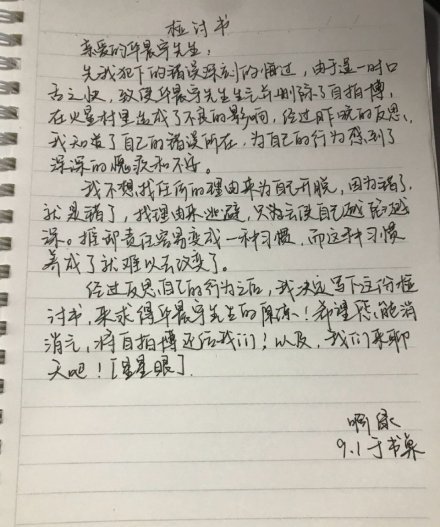 检讨书
亲爱的华晨宇先生：
先我犯下的错误深刻的悔过，由于逞一时口
舌之快，致使华晨宇先生生气并删除了自拍博，
在火星村里造成了不良的影响，经过昨晚的反思，
我知道了自己的错误所在，为自己的行为感到了
深深的愧疚和不安。
我不想找任何的理由来为自己开脱，因为错了，
就是错了，找理由来逃避，只会使自己越陷越
深。推卸责任容易变成一种习惯，而这种习惯
养成了就难以去改变了。
经过反思自己的行为之后，我决定写下这份检
讨书，来求得华晨宇先生的原谅！希望您能消
消气，将自拍博还给我们！以及，我们来聊
天吧！[星星眼]
9.1于书桌